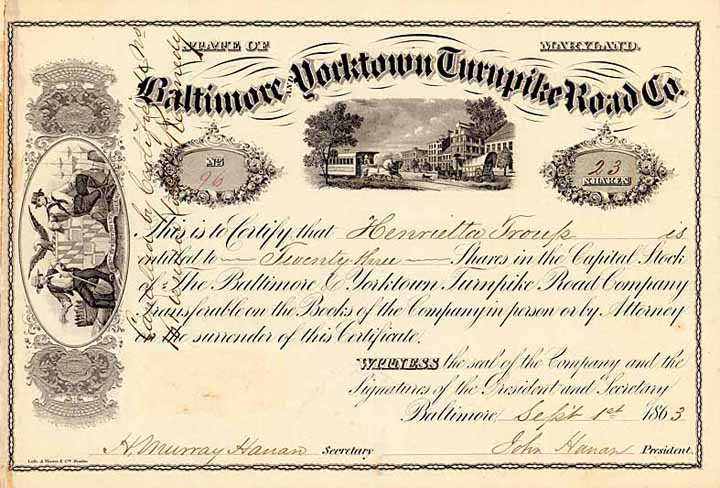 STATE OF MARYLAND.
Baltimore AND Yorktown Turnpike Road Co.
No
96
23
SHARES
This is to Certify that Henrietta Troup is
entitled to Twenty three Shares in the Capital Stock
of The Baltimore & Yorktown Turnpike Road Company
transferable on the Books of the Company in person or by Attorney
on the surrender of this Certificate.
WITNESS the seal of the Company and the
Signatures of the President and Secretary
Baltimore, Sept 1st 1863
H. Murray Hanan Secretary John Hanan President.
Cancelled by Certificate No